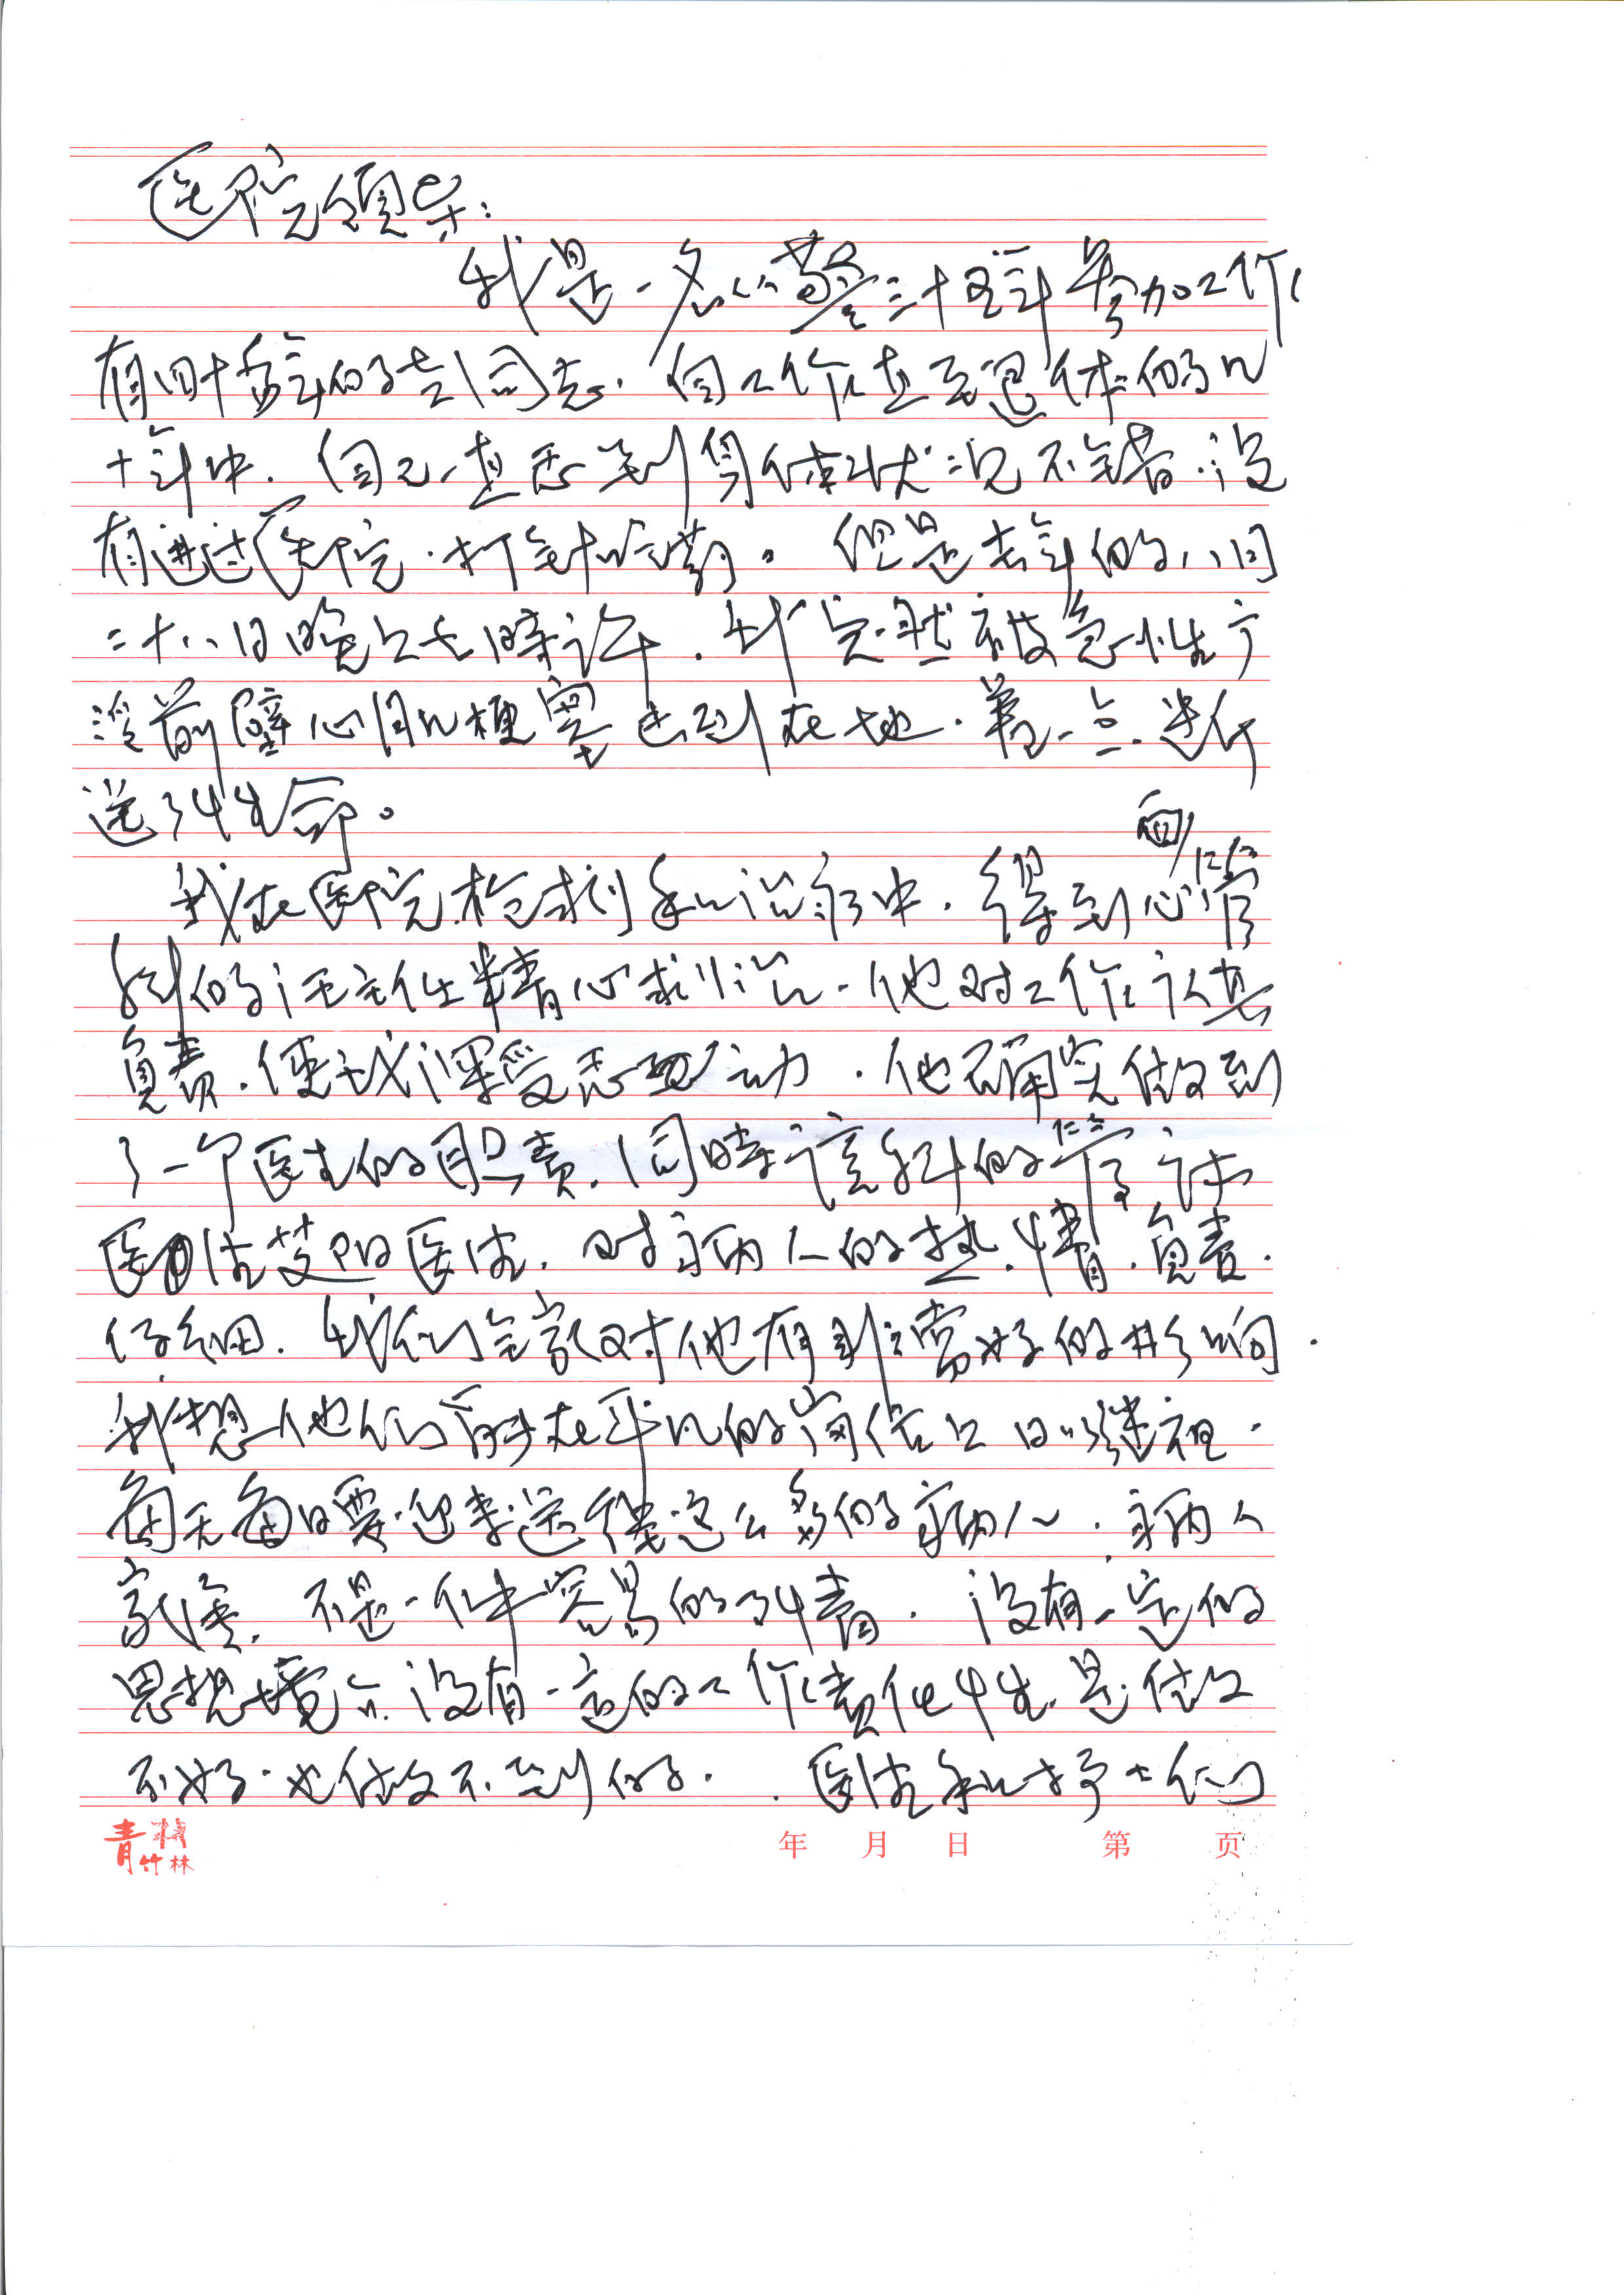 医院领导：
我是一名从警三十五年参加工作
有四十多年的老同志．自工作直至退休的几
十年中．自己一直感到身体状况不错．没
有进过医院．打针吃药。但是去年的八月
二十八日晚上七时许．我突然被急性广
泛前壁心肌梗塞击到在地．差一点
送了性命。
我在医院抢救和治疗中．得到心血管
科的汪主任精心救治．他对工作认真
负责．使我深受感动．他确实做到
了一个医生的职责．同时该科的管
医生 医生．对病人的热情．负责．
仔细．我们全家对他有非常好的影响．
我想他们能在平凡的岗位上日以继夜．
每天每日要迎来送往这么多的病人．病人
家属．不是一件容易的事情．没有一定的
思想境界．没有一定的工作责任性．是做
不好．也做不到的．医生和护士们
青 竹林
年 月 日 第 页